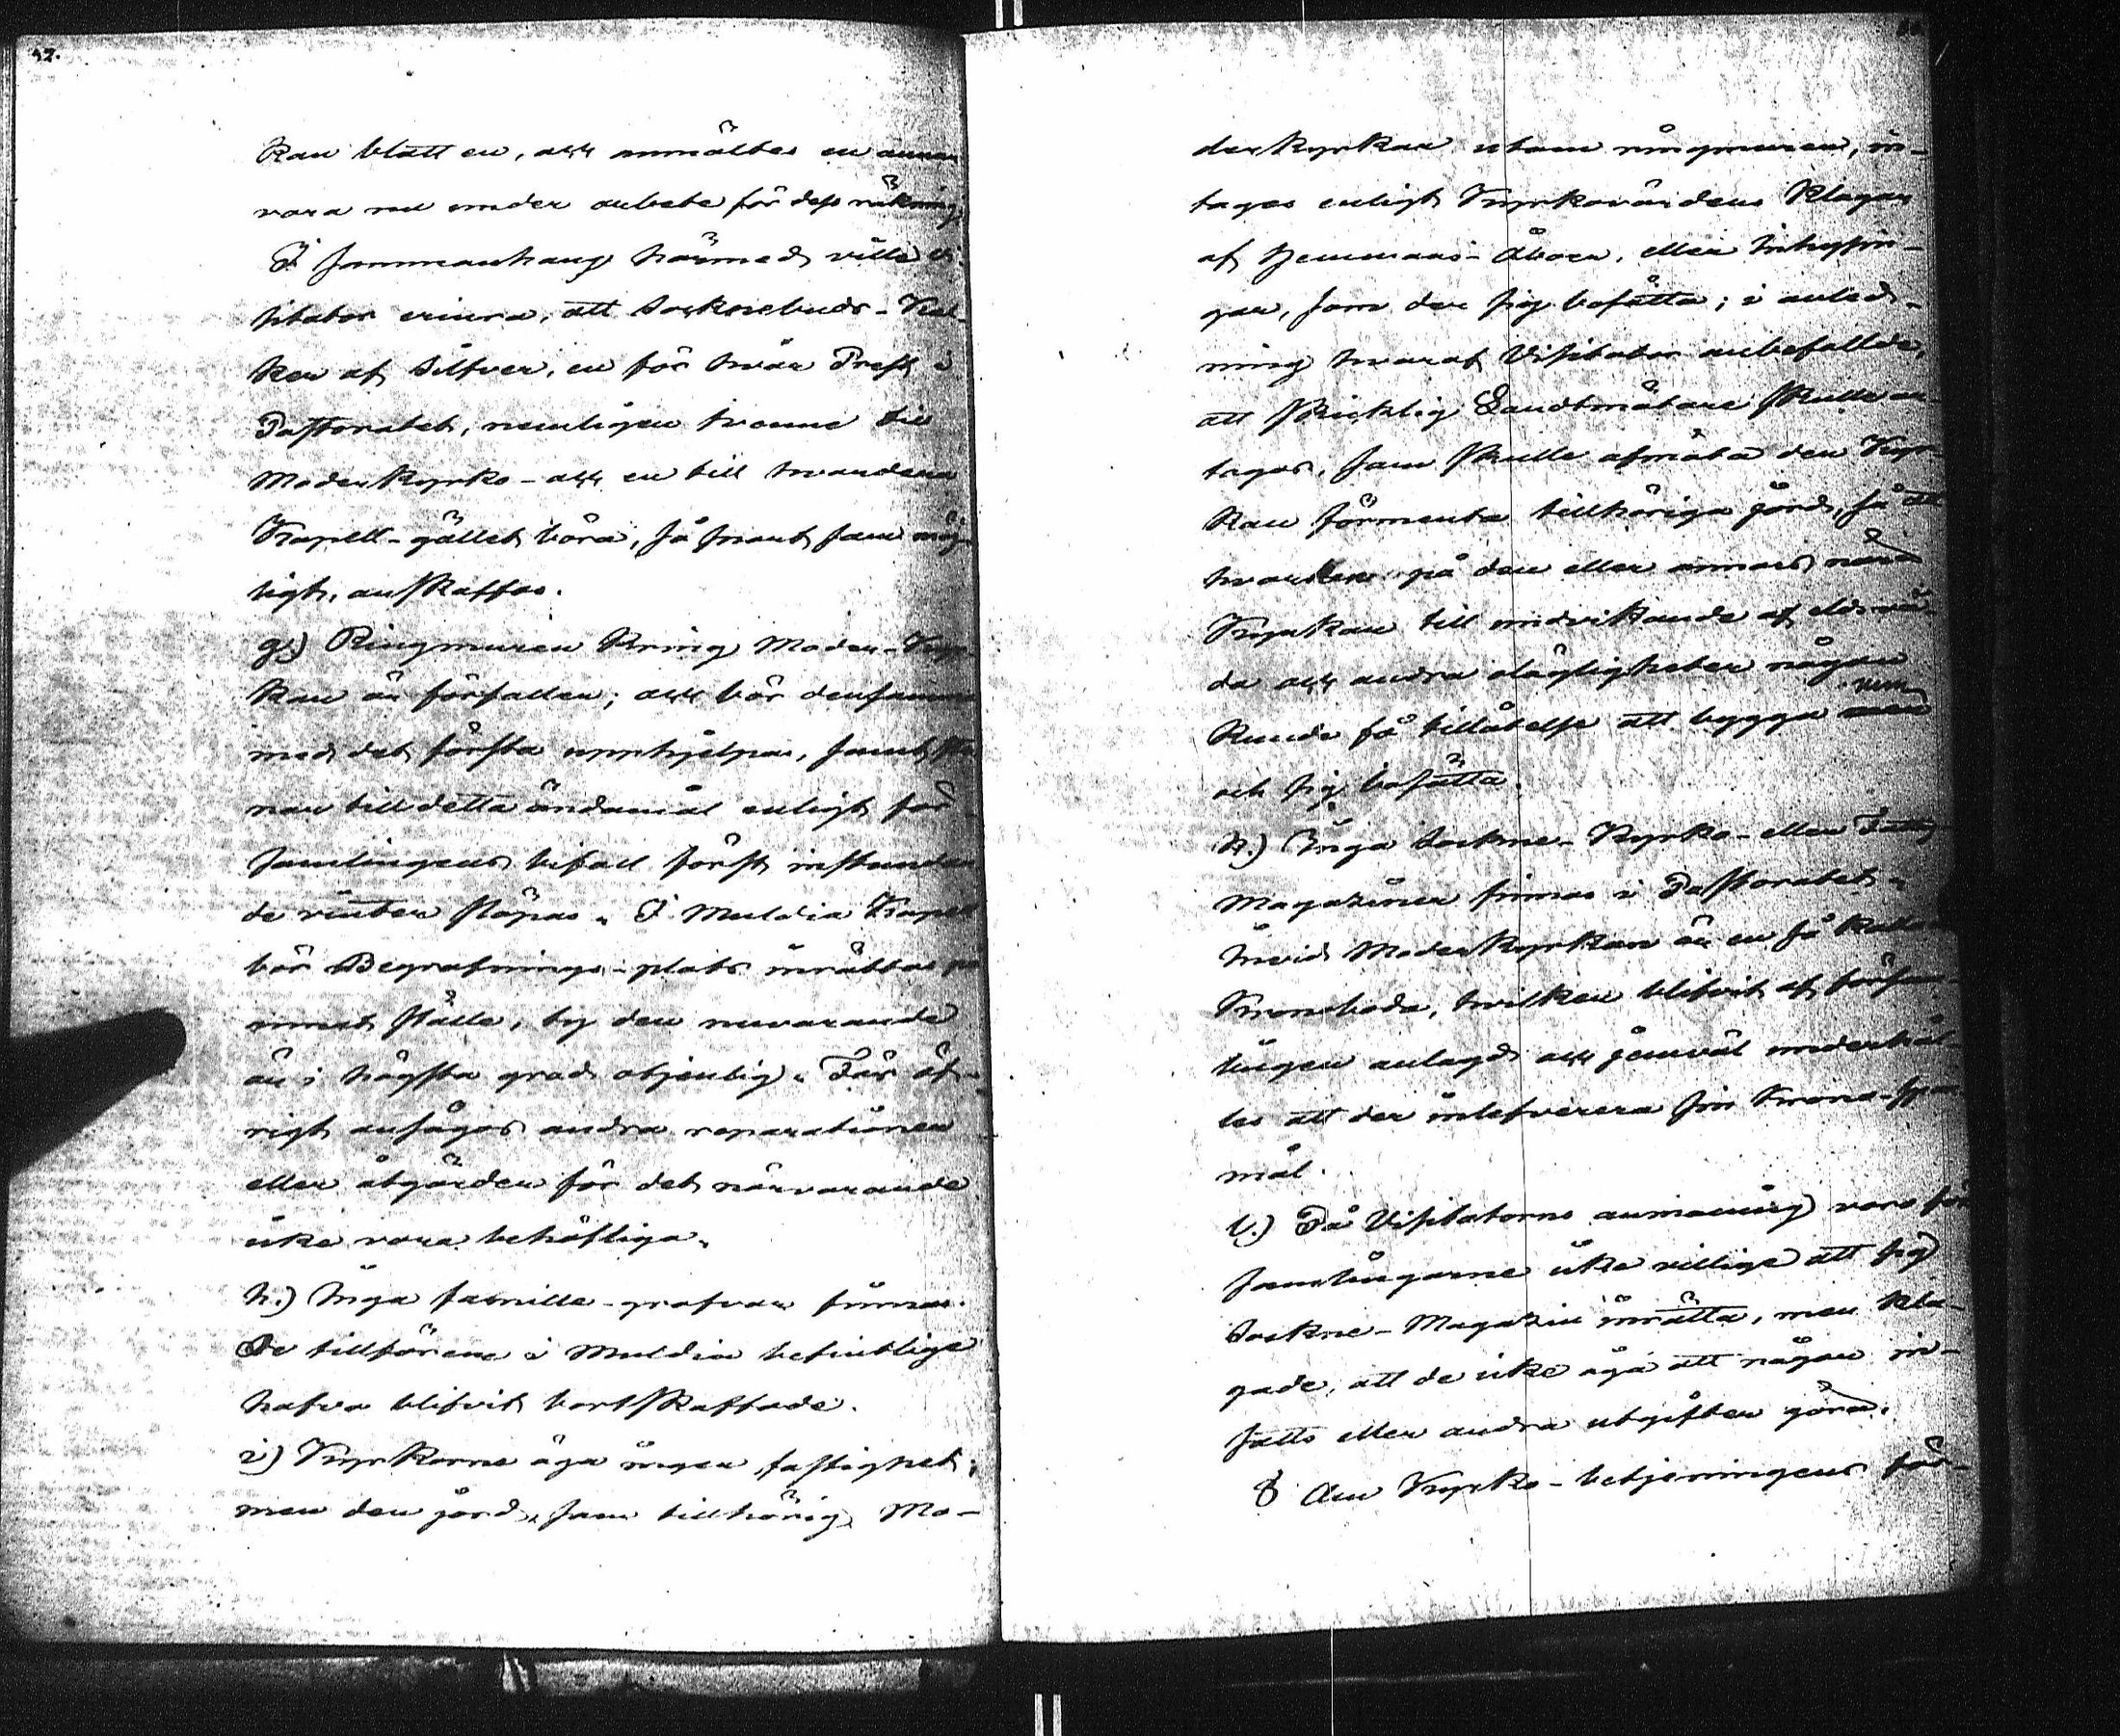 42.
kan blått en, och anmältes en annan
vara nu under arbete för dess räkning.
I sammanhang härmed ville Vi-
sitator erinra, att Socknebuds-Kal-
kar af Silfver, en för hvar Prest i
Pastoratet, nemligen tvenne till
Moderkyrko- och en till hvardera
Kapell-gället böra, så snart som möj-
ligt, anskaffas.
g.) Ringmuren kring Moder-Kyr-
kan är förfallen; och bör densamma
med det första upphjelpas, samt ste-
nar till detta ändamål enligt för-
samlingens bifall först instundan-
de vinter släpas. I Muldia Kapell
bör Begrafnings-plats inrättas på
annat ställe, ty den nuvarande
är i högsta grad otjenlig. För öf-
rigt ansågos andra reparationer
eller åtgärder för det närvarande
icke vara behöfliga.
h.) Inga famille-grafvar finnas.
De tillförene i Muldia befintliga
hafva blifvit bortskaffade.
i) Kyrkorne äga ingen fastighet;
men den jord, som tillhörig Mo-
derkyrkan utom ringmuren, in-
tages enligt Kyrkovärdens klagan
af Hemmans-Åboer, eller Inhysin-
gar, som der sig bosätta; i anled-
ning hvaraf Visitator anbefallde,
att skicklig Landtmätare skulle an-
tagas, som skulle afmäta den Kyr-
kan förmenta tillhöriga jord, så att
hvarken på den eller annars nära
Kyrkan till undvikande af eldsvå-
da och andra olägligheter någon
kunde få tillåtelse att bygga
och sig bosätta.
k.) Inga Sockne-Kyrko- eller Fattig-
Magaziner finnas i Pastoratet.
Invid Moderkyrkan är en så kallad
Kronoboda, hvilken blifvit af försam-
lingen anlagd och jemväl underhål-
les att der inlefverera sin Krono-span-
mål.
l.) På Visitatorns anmaning voro för-
samlingarne icke villige att sig
Sockne-Magazin inrätta, men kla-
gade, att de icke äga att någon in-
satts eller andra utgifter göra.
8 Om Kyrko-betjeningens för-